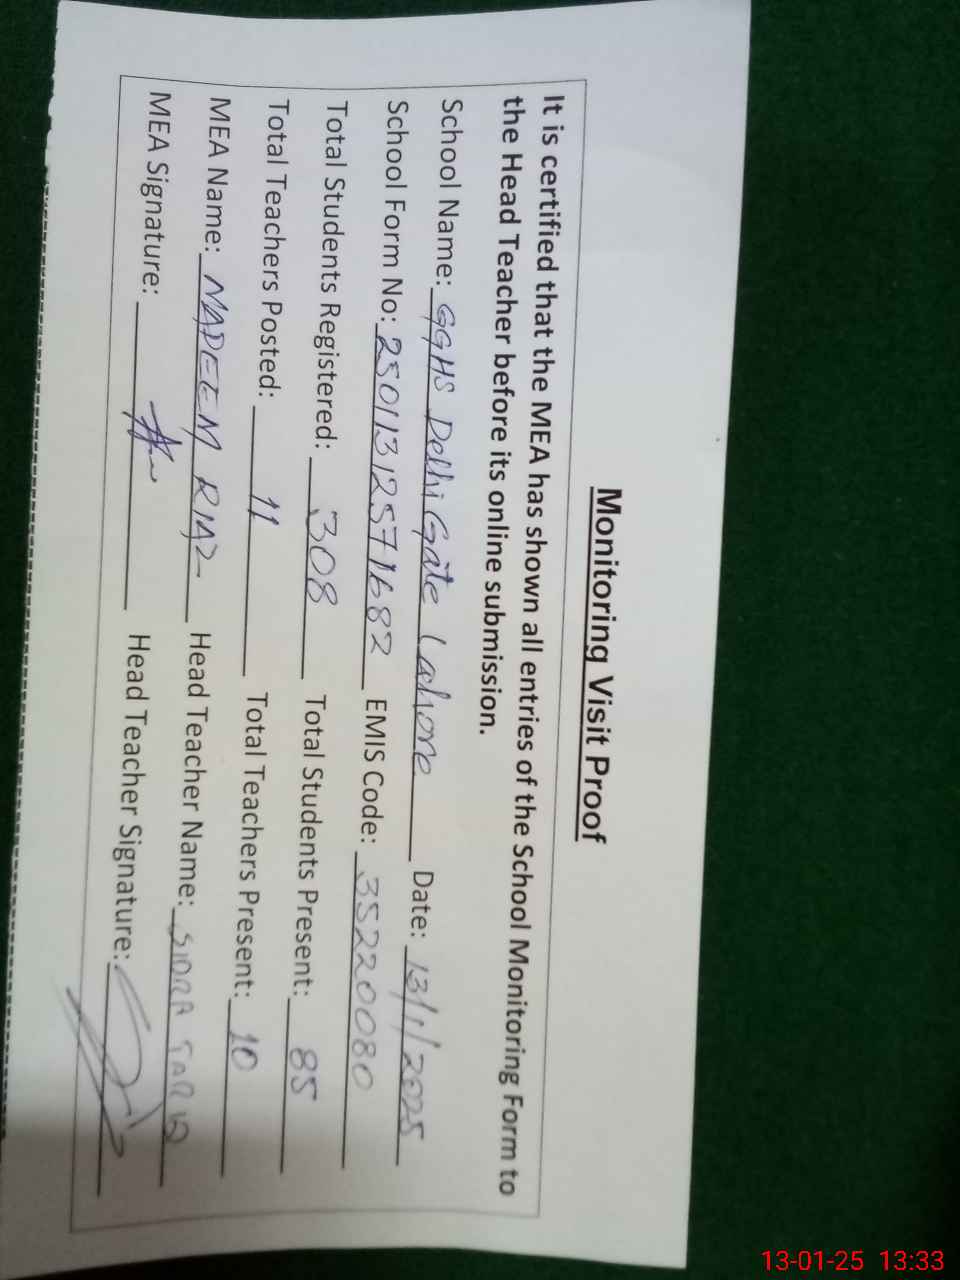 Monitoring Visit Proof
It is certified that the MEA has shown all entries of the School Monitoring Form to
the Head Teacher before its online submission.
School Name: GGHS Delhi Gate Lahore Date: 13/1/2025
School Form No: 25011312571682 EMIS Code: 35220080
Total Students Registered: 308 Total Students Present: 85
Total Teachers Posted: 11 Total Teachers Present: 10
MEA Name: NADEEM RIAZ Head Teacher Name: SIDRA TARIQ
MEA Signature: Head Teacher Signature:
13-01-25 13:33